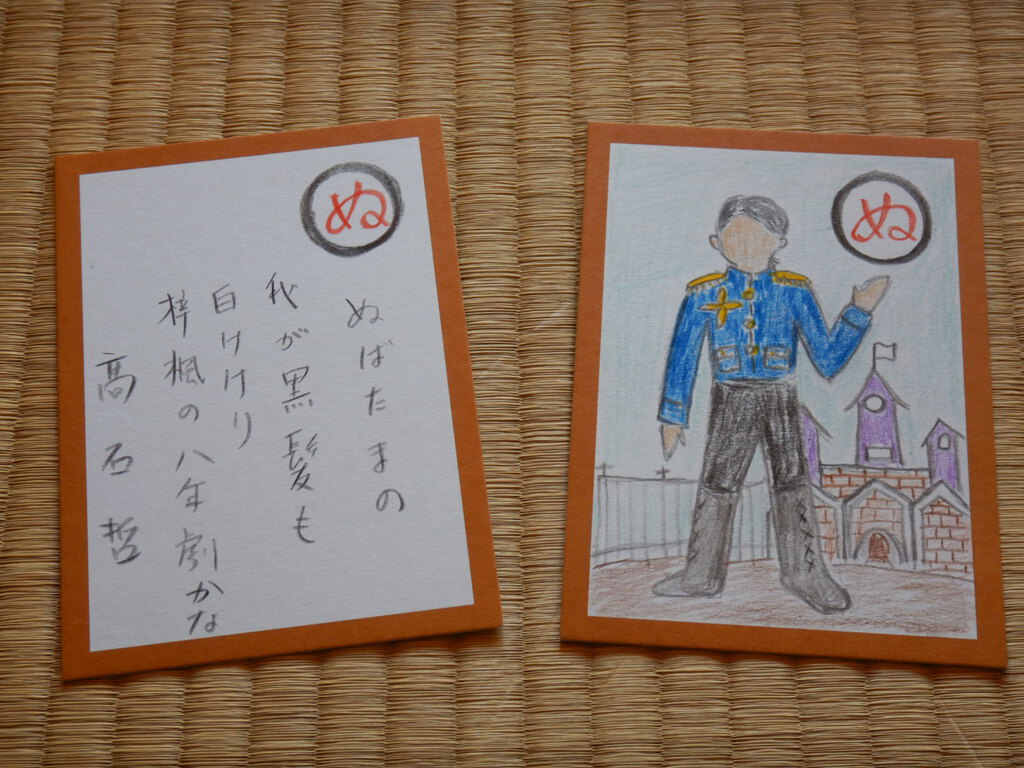 ぬ
ぬばたまの
我が黒髪も
白けけり
梓楓の八年劇かな
高石哲
ぬ